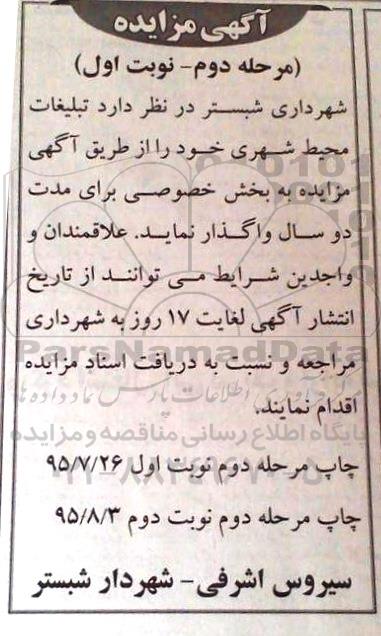 آگهی مزایده
(مرحله دوم- نوبت اول)
شهرداری شبستر در نظر دارد تبلیغات
محیط شهری خود را از طریق آگهی
مزایده به بخش خصوصی برای مدت
دو سال واگذار نماید. علاقمندان و
واجدین شرایط می توانند از تاریخ
انتشار آگهی لغایت ۱۷ روز به شهرداری
ParsNamadData
مراجعه و نسبت به دریافت اسناد مزایده
اقدام نمایند.
پایگاه اطلاع رسانی مناقصه و مزایده
چاپ مرحله دوم نوبت اول ۹۵/۷/۲۶
چاپ مرحله دوم نوبت دوم ۹۵/۸/۳
سیروس اشرفی- شهردار شبستر